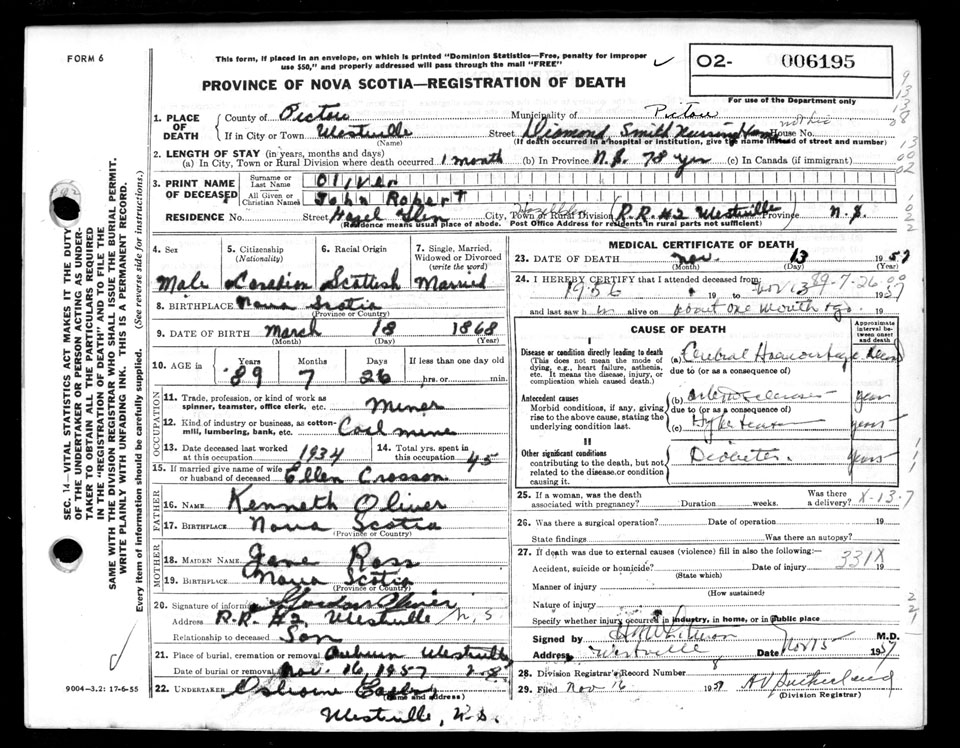 FORM 6
This form, if placed in an envelope, on which is printed "Dominion Statistics—Free, penalty for improper
use $50," and properly addressed will pass through the mail "FREE"
02- 006195
For use of the Department only
PROVINCE OF NOVA SCOTIA—REGISTRATION OF DEATH
1. PLACE OF DEATH
County of Pictou Municipality of Pictou
If in City or Town Westville Street Diamond Smith Nursing Home House No.
(Name) (If death occurred in a hospital or institution, give the name instead of street and number)
2. LENGTH OF STAY (in years, months and days)
(a) In City, Town or Rural Division where death occurred 1 month (b) In Province N.S. 78 yrs (c) In Canada (if immigrant)
3. PRINT NAME OF DECEASED
Surname or Last Name Oliver
All Given or Christian Names John Robert
RESIDENCE No. Street Hazel Glen City, Town or Rural Division (R.R. #2 Westville Province) N.S.
(Residence means usual place of abode. Post Office Address for residents in rural parts not sufficient)
4. Sex Male
5. Citizenship (Nationality) Canadian
6. Racial Origin Scottish
7. Single, Married, Widowed or Divorced (write the word) Married
8. BIRTHPLACE Nova Scotia
(Province or Country)
9. DATE OF BIRTH March 18 1868
(Month) (Day) (Year)
10. AGE in Years 89 Months 7 Days 26 If less than one day old hrs. or min.
OCCUPATION
11. Trade, profession, or kind of work as spinner, teamster, office clerk, etc. Miner
12. Kind of industry or business, as cotton-mill, lumbering, bank, etc. Coal mine
13. Date deceased last worked at this occupation 1934
14. Total yrs. spent in this occupation 45
15. If married give name of wife or husband of deceased Ellen Crosson
FATHER
16. NAME Kenneth Oliver
17. BIRTHPLACE Nova Scotia
(Province or Country)
MOTHER
18. MAIDEN NAME Jane Ross
19. BIRTHPLACE Nova Scotia
(Province or Country)
20. Signature of informant Oliver
Address R.R. #2, Westville N.S.
Relationship to deceased Son
21. Place of burial, cremation or removal Auburn Westville
Date of burial or removal Nov. 16, 1957
22. UNDERTAKER Osborne
(Name and address)
Westville, N.S.
9004—3.2: 17-6-55
MEDICAL CERTIFICATE OF DEATH
23. DATE OF DEATH Nov. 13 1957
(Month) (Day) (Year)
24. I HEREBY CERTIFY that I attended deceased from:
1956 19 to Nov 13 1957
89-7-26
and last saw h im alive on about one month ago. 19
CAUSE OF DEATH
Approximate interval between onset and death
I
Disease or condition directly leading to death
(This does not mean the mode of dying, e.g., heart failure, asthenia, etc. It means the disease, injury, or complication which caused death.)
(a) Cerebral Haemorrhage
due to (or as a consequence of)
Antecedent causes
Morbid conditions, if any, giving rise to the above cause, stating the underlying condition last.
(b) years
due to (or as a consequence of)
(c) years
II
Other significant conditions
contributing to the death, but not related to the disease or condition causing it.
Diabetes. years
25. If a woman, was the death associated with pregnancy? Duration weeks. Was there a delivery?
X-13-7
26. Was there a surgical operation? Date of operation 19
State findings Was there an autopsy?
27. If death was due to external causes (violence) fill in also the following:—
Accident, suicide or homicide? Date of injury 19
331X
(State which)
Manner of injury
(How sustained)
Nature of injury
Specify whether injury occurred in industry, in home, or in public place
Signed by M.D.
Address Westville Date Nov 15 1957
28. Division Registrar's Record Number 8
29. Filed Nov 16 1957 Sutherland
(Division Registrar)
SEC. 14—VITAL STATISTICS ACT MAKES IT THE DUTY
OF THE UNDERTAKER OR PERSON ACTING AS UNDER-
TAKER TO OBTAIN ALL THE PARTICULARS REQUIRED
IN THE "REGISTRATION OF DEATH" AND TO FILE THE
SAME WITH THE DIVISION REGISTRAR WHO SHALL ISSUE THE BURIAL PERMIT.
WRITE PLAINLY WITH UNFADING INK. THIS IS A PERMANENT RECORD.
Every item of information should be carefully supplied. (See reverse side for instructions.)